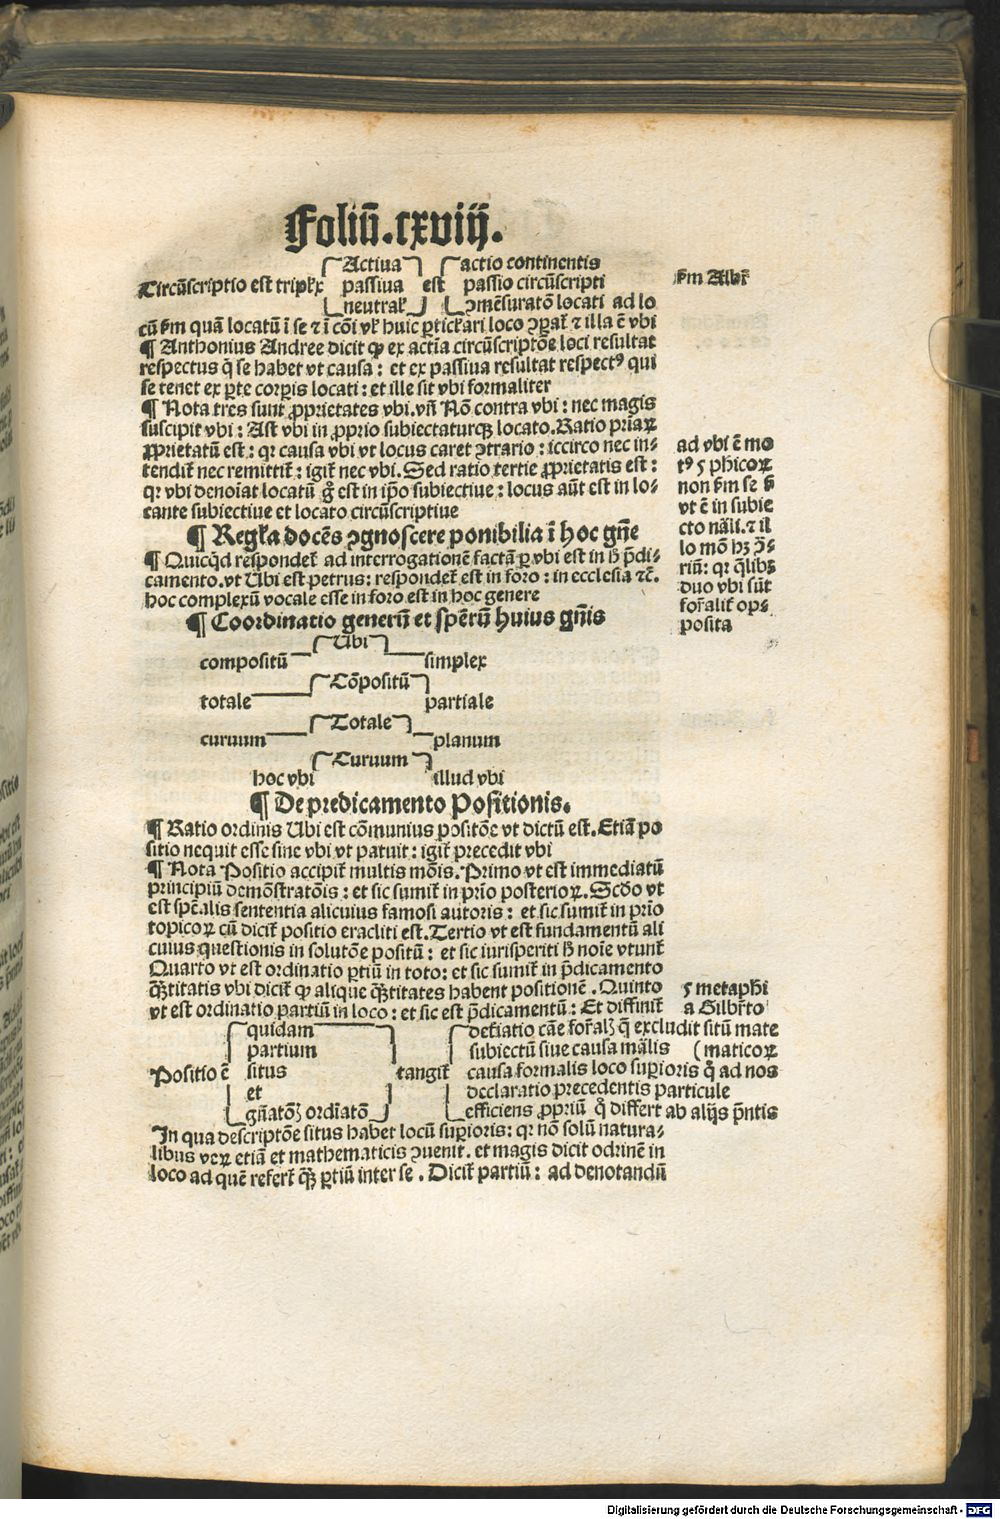 Foliū.cxviij.
Activa actio continentis
Circūscriptio est triplex passiua est passio circūscripti
neutral' ↄmēsuratō locati ad lo
cū s'm quā locatū ī se ⁊ ī cōi vl' huic ꝑticl'ari loco ↄꝑat' ⁊ illa ē vbi
s'm Alb'
¶ Anthonius Andree dicit ꝙ ex actīa circūscriptōe loci resultat
respectus q̄ se habet vt causa : et ex passiua resultat respectꝰ qui
se tenet ex ꝑte corꝑis locati : et ille sit vbi formaliter
¶ Nota tres sunt ꝓprietates vbi. vñ Nō contra vbi : nec magis
suscipit vbi : Ast vbi in ꝓprio subiectaturqꝫ locato. Ratio priaꝝ
ꝓprietatū est : qr causa vbi vt locus caret ↄtrario : iccirco nec in⸗
tendit' nec remittit' : igit' nec vbi. Sed ratio tertie ꝓprietatis est :
qr vbi denoīat locatū g° est in ip̄o subiectiue : locus aūt est in lo⸗
cante subiectiue et locato circūscriptiue
ad vbi ē mo
tꝰ 5 ph'icoꝝ
non s'm se s'
vt ē in subie
cto nāli. ⁊ il
lo mō hꝫ ↄ̄⸗
riū : qr q̄libꝫ
duo vbi sūt
for̄alit' op⸗
posita
¶ Regl'a docēs ↄgnoscere ponibilia ī hoc gn̄e
¶ Quicq̇d respondet' ad interrogationē factā ꝑ vbi est in h' p̄di⸗
camento. vt Ubi est petrus : respondet' est in foro : in ecclesia ⁊c̄.
hoc complexū vocale esse in foro est in hoc genere
¶ Coordinatio generū et sp̄erū huius gn̄is
Ubi
compositū simplex
Cōpositū
totale partiale
Totale
curuum planum
Curuum
hoc vbi illud vbi
¶ De predicamento Positionis.
¶ Ratio ordinis Ubi est cōmunius positōe vt dictū est. Etiā po
sitio nequit esse sine vbi vt patuit : igit' precedit vbi
¶ Nota Positio accipit' multis mōis. Primo vt est immediatū
principiū demōstratōis : et sic sumit' in prīo posterioꝝ. Scd̄o vt
est sp̄ealis sententia alicuius famosi autoris : et sic sumit' in prīo
topicoꝝ cū dicit' positio eracliti est. Tertio vt est fundamentū ali
cuius questionis in solutōe positū : et sic iurisperiti h' noīe vtunt'
Quarto vt est ordinatio ꝑtiū in toto : et sic sumit' in p̄dicamento
q̄ꝫtitatis vbi dicit' ꝙ alique q̄ꝫtitates habent positionē. Quinto
vt est ordinatio partiū in loco : et sic est p̄dicamentū : Et diffinit'
5 metaph'i
a Gilbr̄to
quidam det'iatio cāe for̄al' q̄ excludit sitū mate
partium subiectū siue causa māl'is (maticoꝝ
Positio ē situs tangit' causa formalis loco suꝑioris q° ad nos
et declaratio precedentis particule
gn̄atōꝫ ordīatō efficiens ꝓpriū q° differt ab alijs p̄ntis
In qua descriptōe situs habet locū suꝑioris : qr nō solū natura⸗
libus veꝝ etiā et mathematicis ↄuenit. et magis dicit odrinē in
loco ad quē refert' q̄ꝫ ꝑtiū inter se . Dicit' partiū : ad denotandū
Digitalisierung gefördert durch die Deutsche Forschungsgemeinschaft - DFG